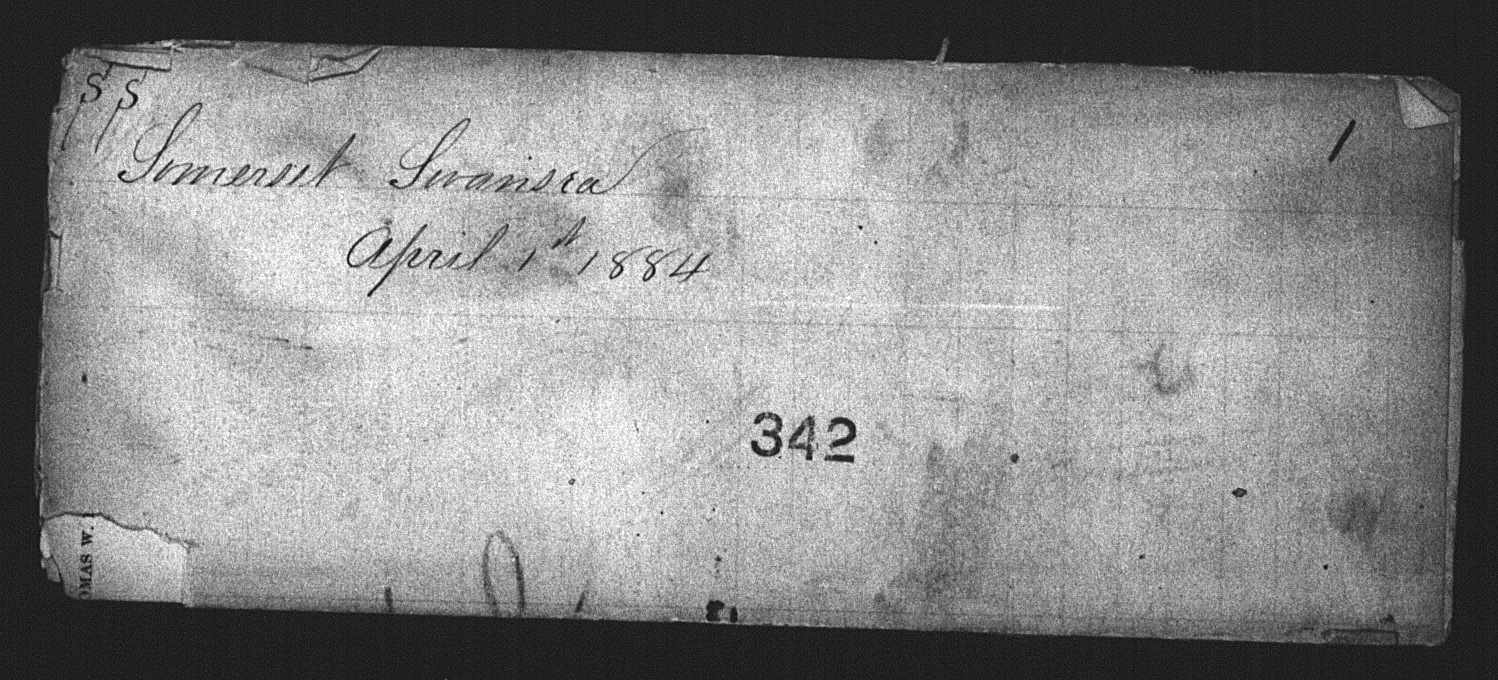 S S
1
Somerset Swansea
April 1st 1884
342
OMAS W.